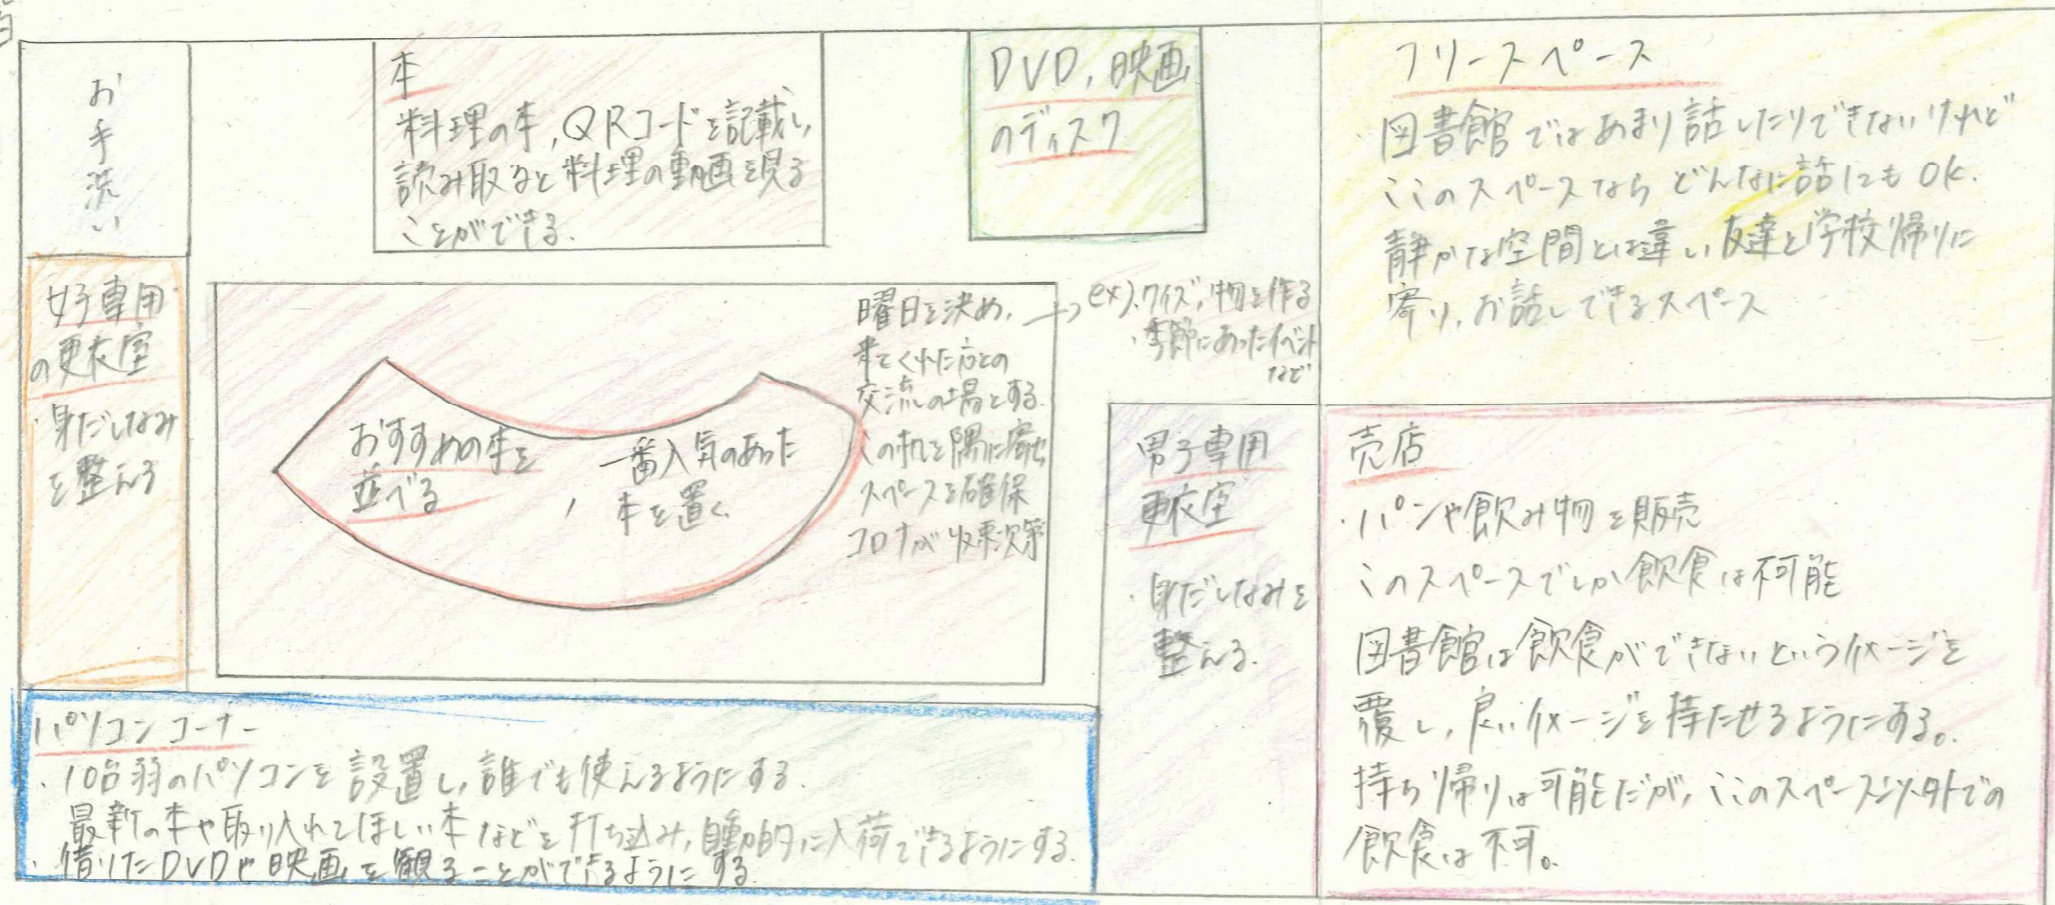 お手洗い
本
料理の本,QRコードを記載し,
読み取ると料理の動画を見る
ことができる.
DVD,映画
のディスク
フリースペース
・図書館ではあまり話したりできないけれど
ここのスペースならどんなに話してもOK.
静かな空間とは違い友達と学校帰りに
寄り,お話しできるスペース
女子専用
の更衣室
・身だしなみ
を整える
おすすめの本を
並べる
,
一番人気のあった
本を置く.
曜日を決め,
来てくれた方との
交流の場とする.
この机を隅に寄せ
スペースを確保
コロナが収束次第
→ex).クイズ,物を作る
・季節にあったイベント
など
男子専用
更衣室
・身だしなみを
整える.
売店
・パンや飲み物を販売
このスペースでしか飲食は不可能
図書館は飲食ができないというイメージを
覆し,良いイメージを持たせるようにする。
持ち帰りは可能だが,ここのスペース以外での
飲食は不可。
パソコンコーナー
・10台弱のパソコンを設置し,誰でも使えるようにする.
最新の本や取り入れてほしい本などを打ち込み,自動的に入荷できるようにする.
・借りたDVDや映画を観ることができるようにする.